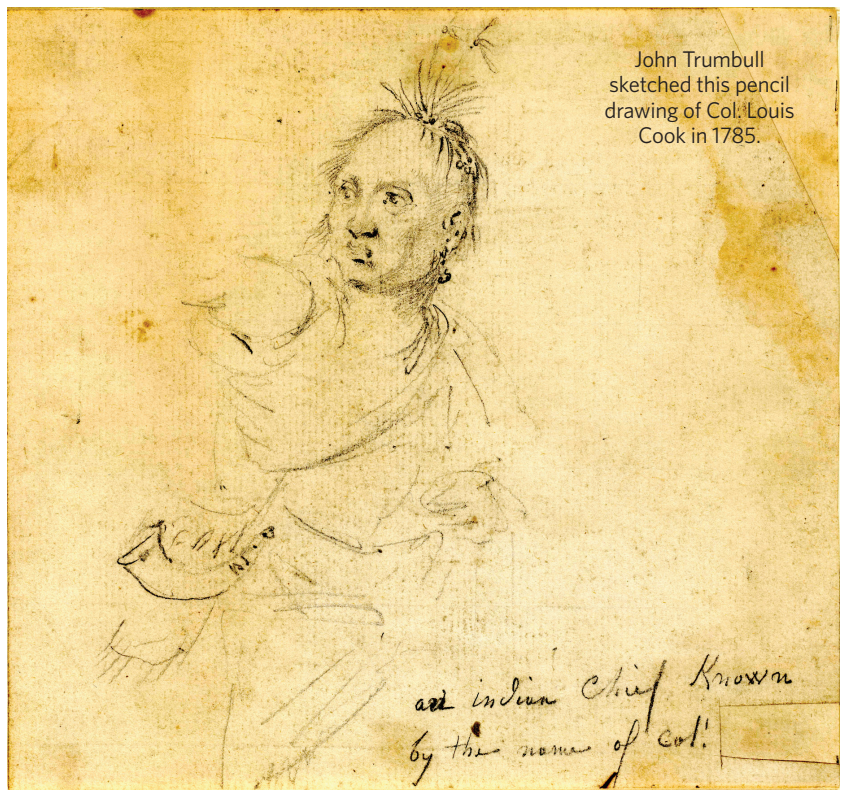 John Trumbull
sketched this pencil
drawing of Col. Louis
Cook in 1785.
an indian Chief Known
by the name of Col!